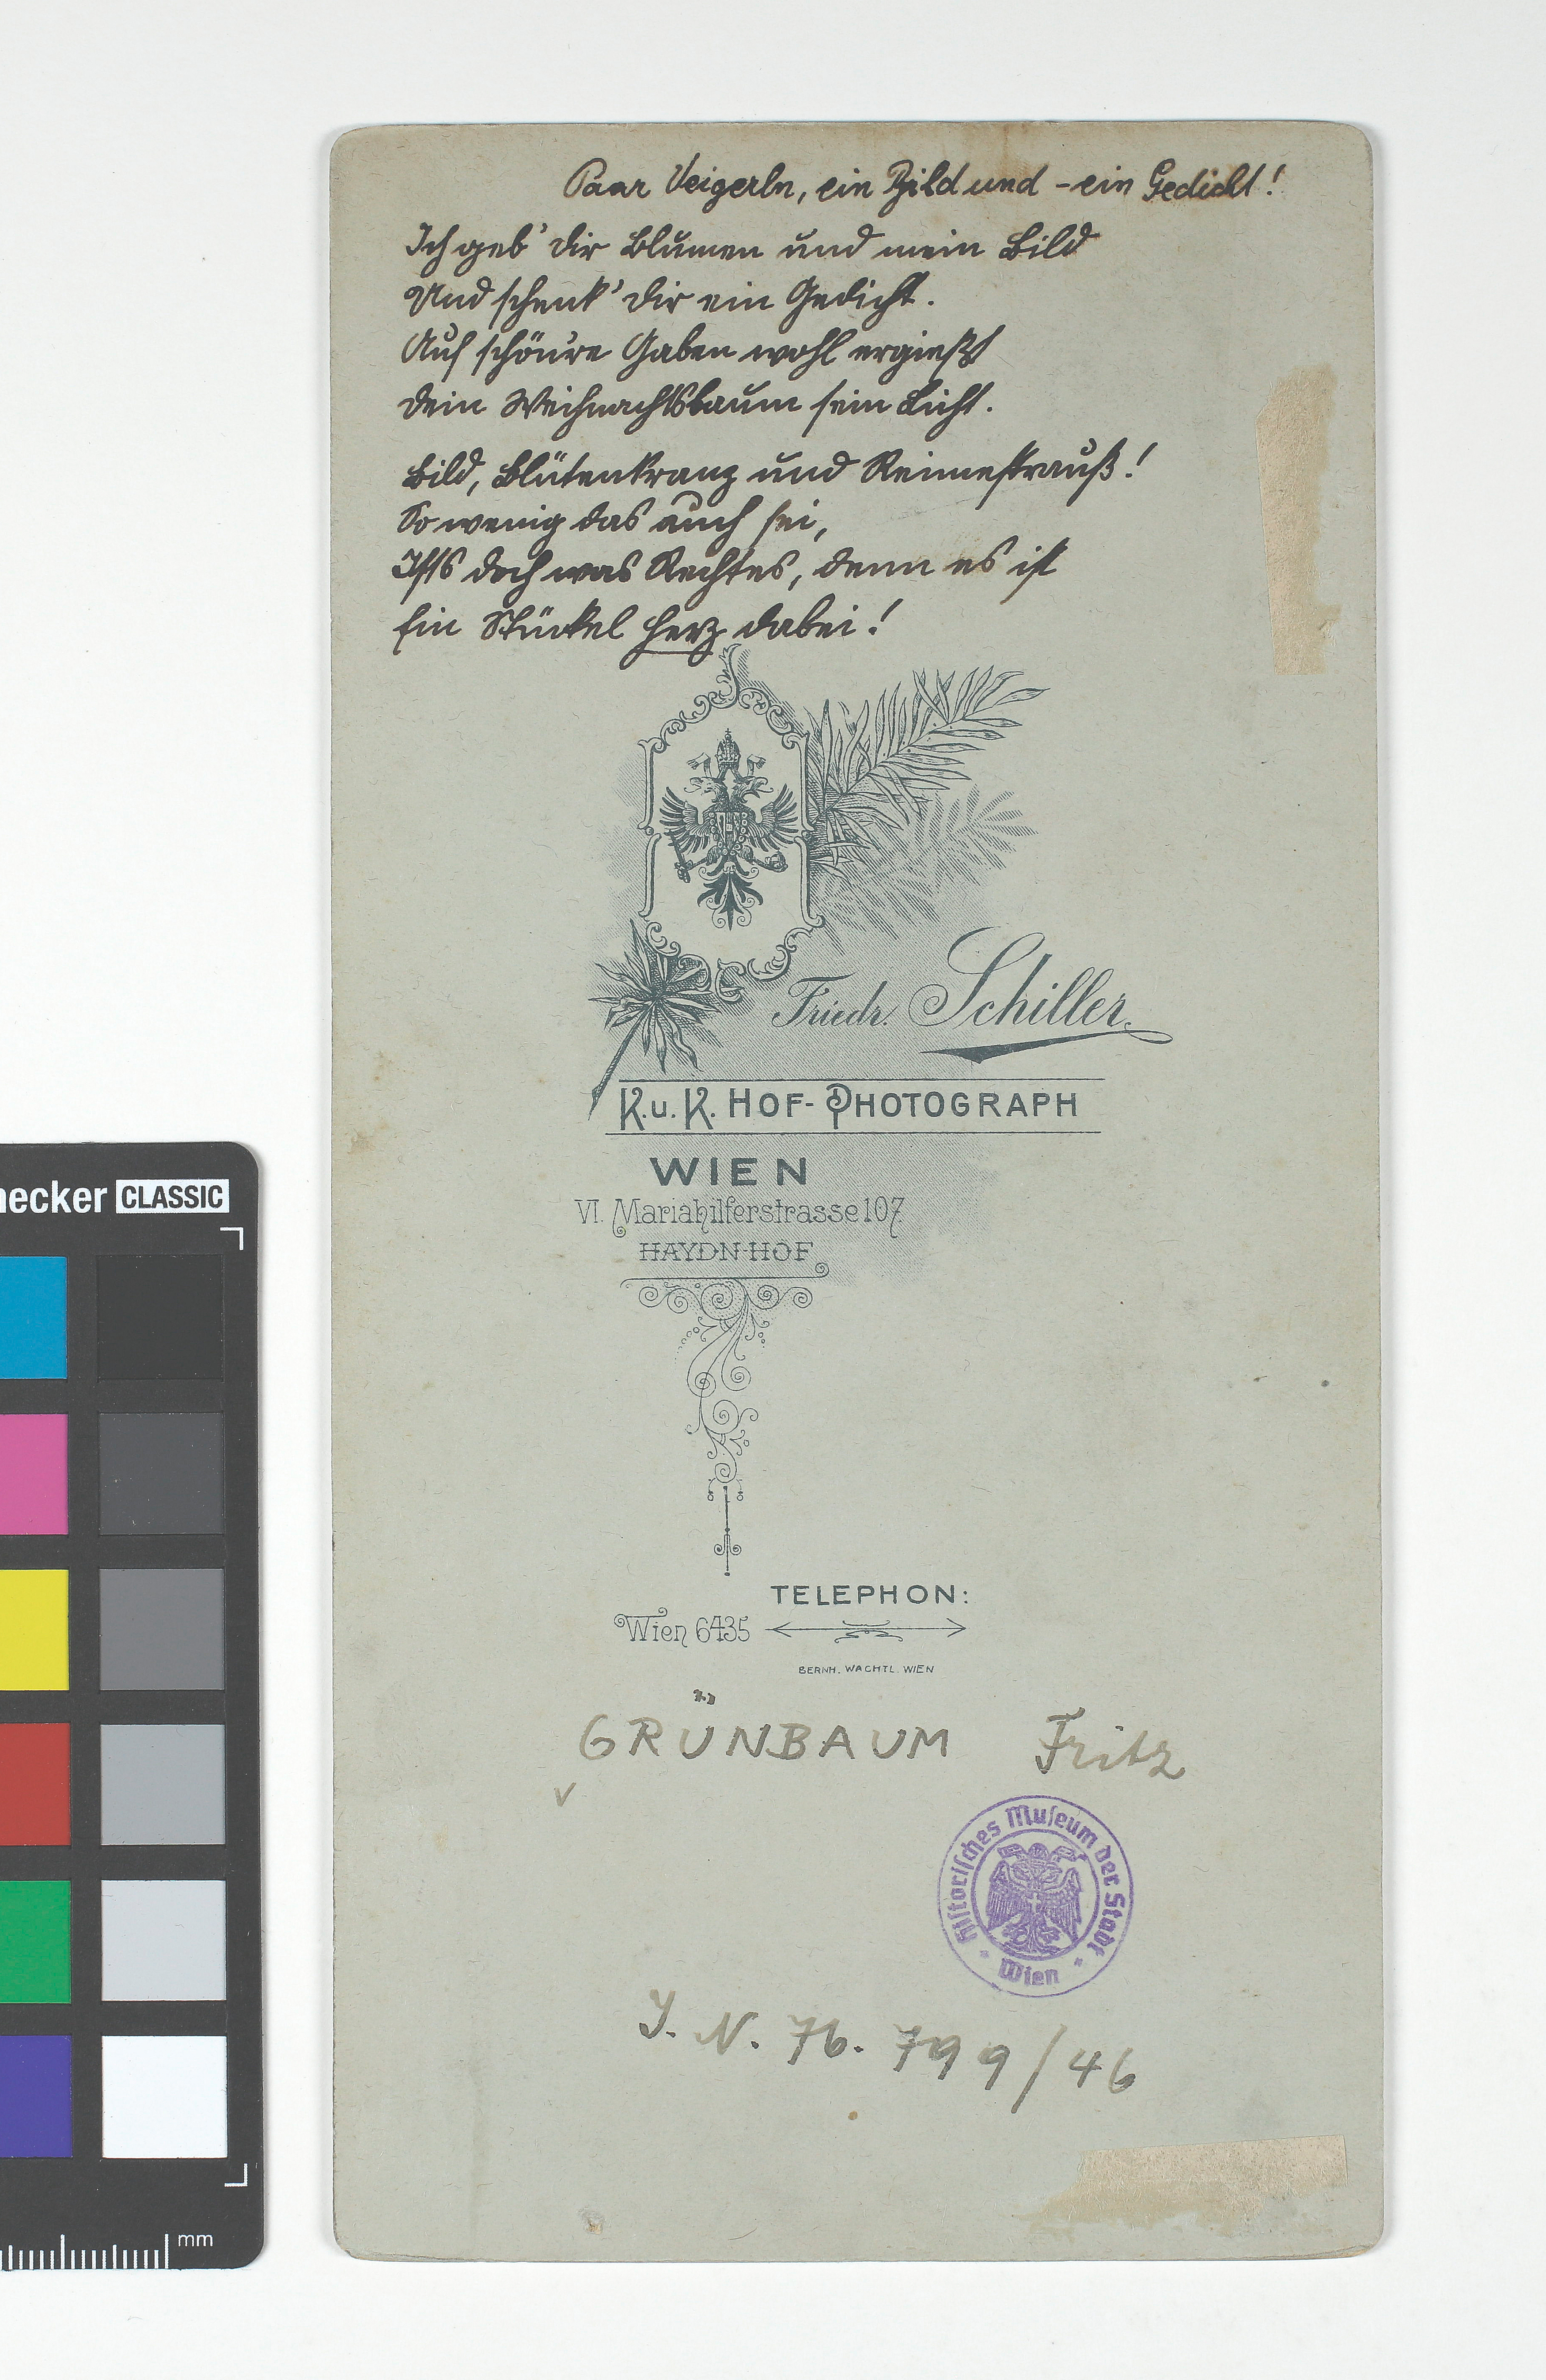 Paar Veigerln, ein Bild und - ein Gedicht!
Ich geb' dir Blumen und mein Bild
Und schenk' dir ein Gedicht.
Auf schön're Gaben wohl ergießt
dein Weihnachtsbaum sein Licht.
Bild, Blütenkranz und Reimestrauß!
So wenig das auch sei,
Ists doch was Rechtes, denn es ist
Ein Stückel Herz dabei!
Friedr. Schiller
K.u.K. HOF-PHOTOGRAPH
WIEN
VI. Mariahilferstrasse 107
HAYDN-HOF
TELEPHON:
Wien 6435
BERNH. WACHTL. WIEN
GRÜNBAUM Fritz
Historisches Museum der Stadt Wien
J. N. 76.799/46
CLASSIC
mm